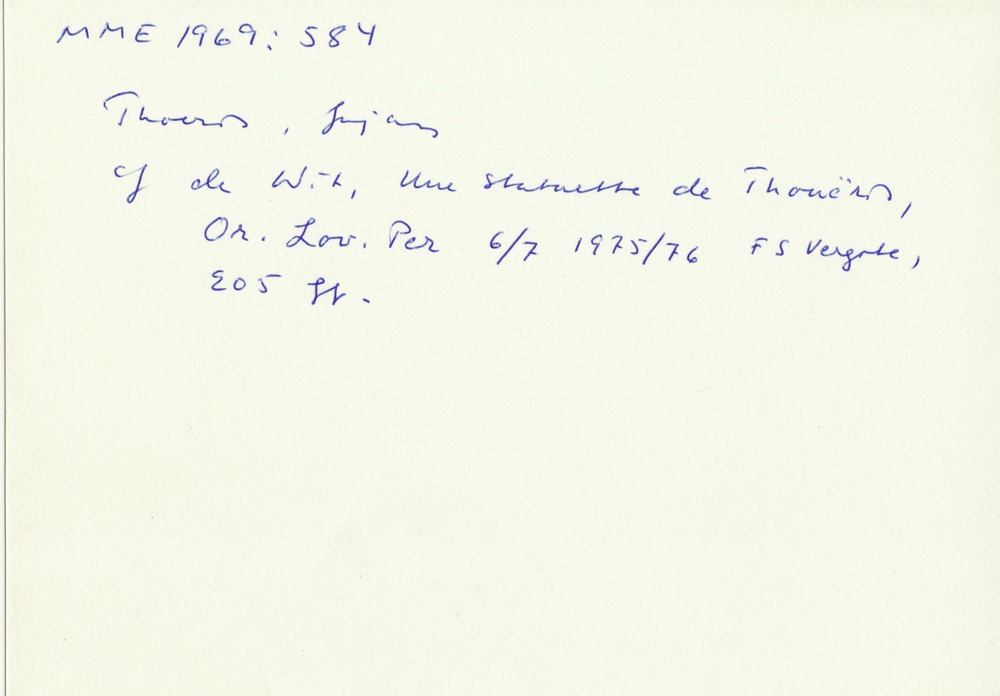 MME 1969: 584
Thoeris, fajans
cf de Wit, Une statuette de Thouëris,
Or. Lov. Per 6/7 1975/76 FS Vergote,
205 ff.